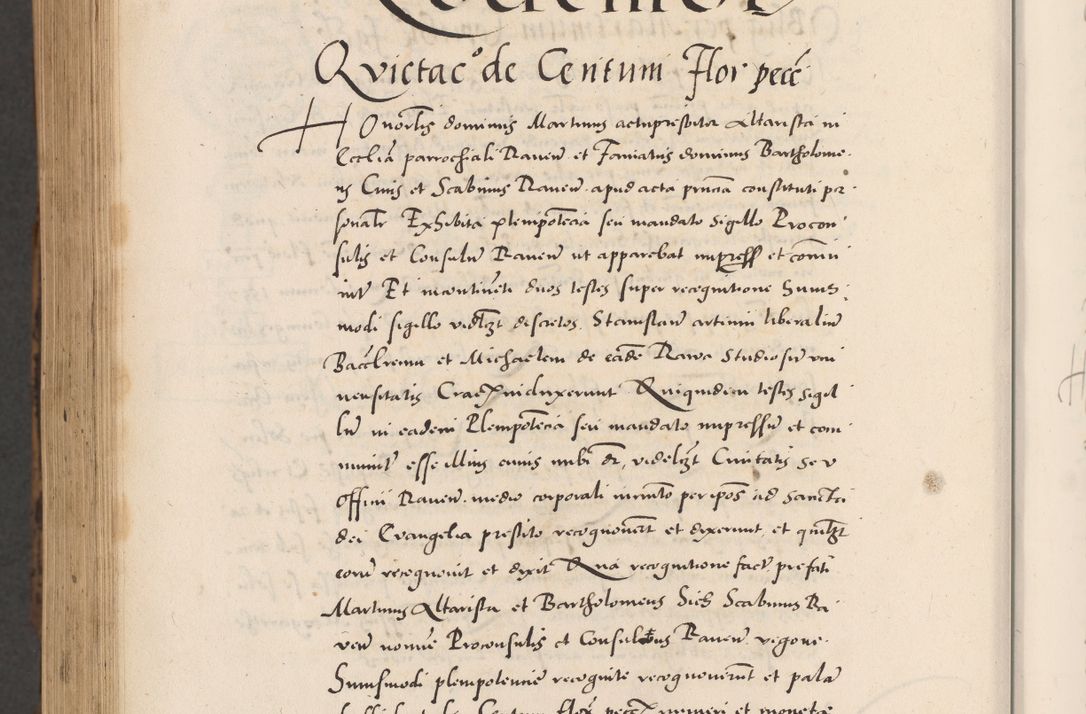 Qvictac° de Centum Flor pecc
Honorlis dominus Martinus actupresbiter Altarista in
Ecclia parrochiali Raven et Famatus dominus Bartholome
us Civis et Scabinus Raven apud acta pncia constituti per
sonalr Exhibita plenipotecia seu mandato sigillo Procon
sulis et Consulu Raven ut apparebat impress et comu
nit Et incontineti duos testes super recognitione Huius
modi sigillo videlzt discretos Stanislau artium liberaliu
Baccreum et Michaelem de eade Rawa Studiosu uni
uersitatis Crac induxerunt Quiquidem testes sigil
lu in eadem Plenipotecia seu mandato impressu et com
munit esse illius cuius inibi dr, videlzt Civitatis seu
Offici Raven medio corporali iurmto per ipos ad Sancta
dei Evangelia prestito recognouert et dixerunt et quilzt
eoru recognouit et dixit Qua recognitione fact prefati
Martinus Altarista et Bartholomeus Scabinus Ra
ven noine Proconsulis et Consulibus Raven vigore
Huiusmodi plenipotencie recognite recognouerunt et pala
Centum flor pecc numeri et monete